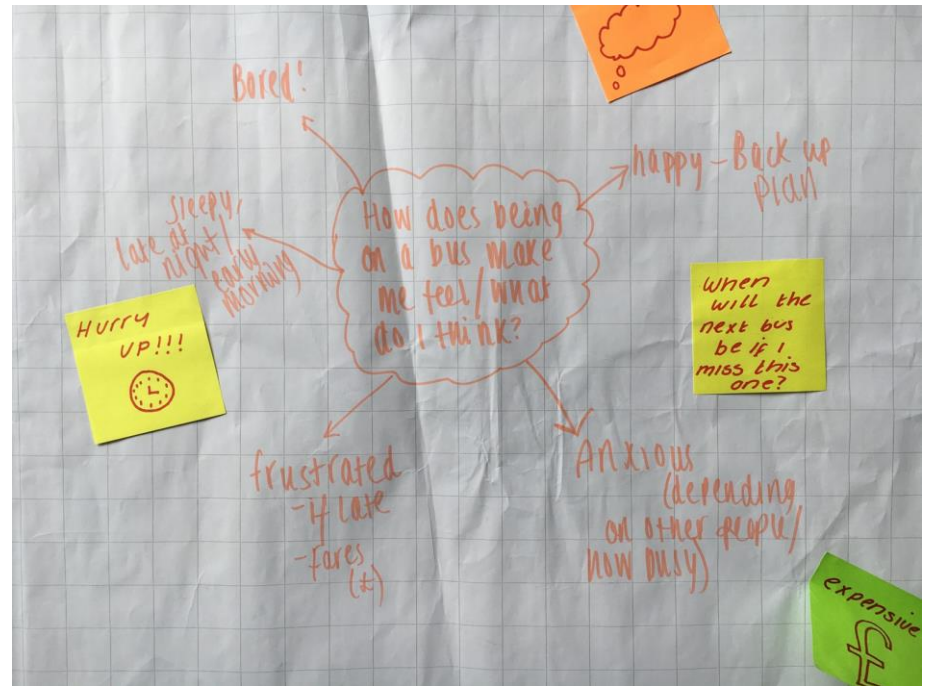 Bored!
happy - Back up
plan
sleepy,
late at
night/
early
morning
How does being
on a bus make
me feel/what
do I think?
Hurry
UP!!!
When
will the
next bus
be if I
miss this
one?
frustrated
- if late
- fares
(£)
Anxious
(depending
on other people/
how busy)
expensive
£